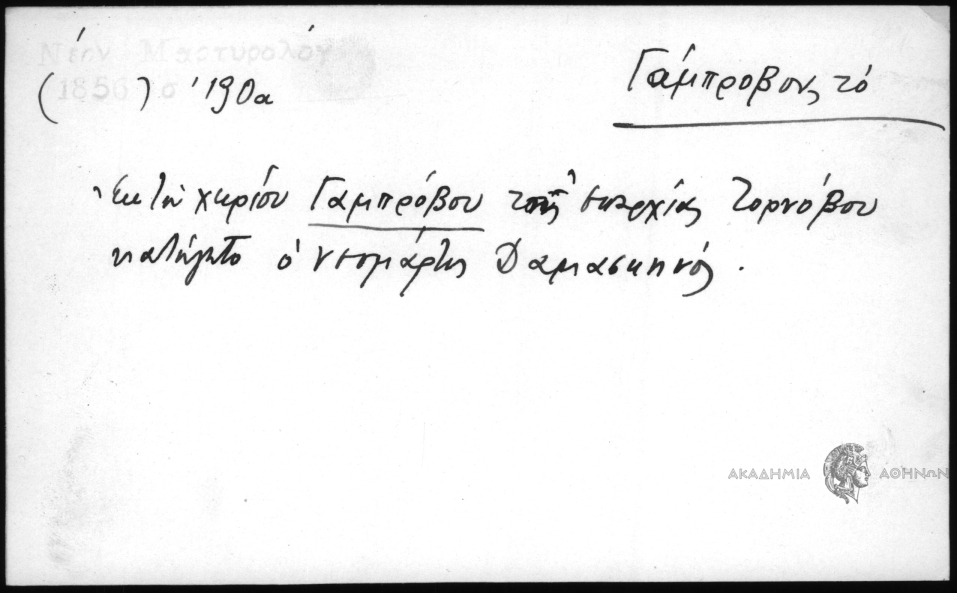 Νέον Μαρτυρολόγ
(1856) σ 190α
Γάμπροβον, τό
Ἐκ τοῦ χωρίου Γαμπρόβου τῆς ἐπαρχίας Τορνόβου
κατήγετο ὁ νεομάρτυς Δαμασκηνός.
ΑΚΑΔΗΜΙΑ ΑΘΗΝΩΝ